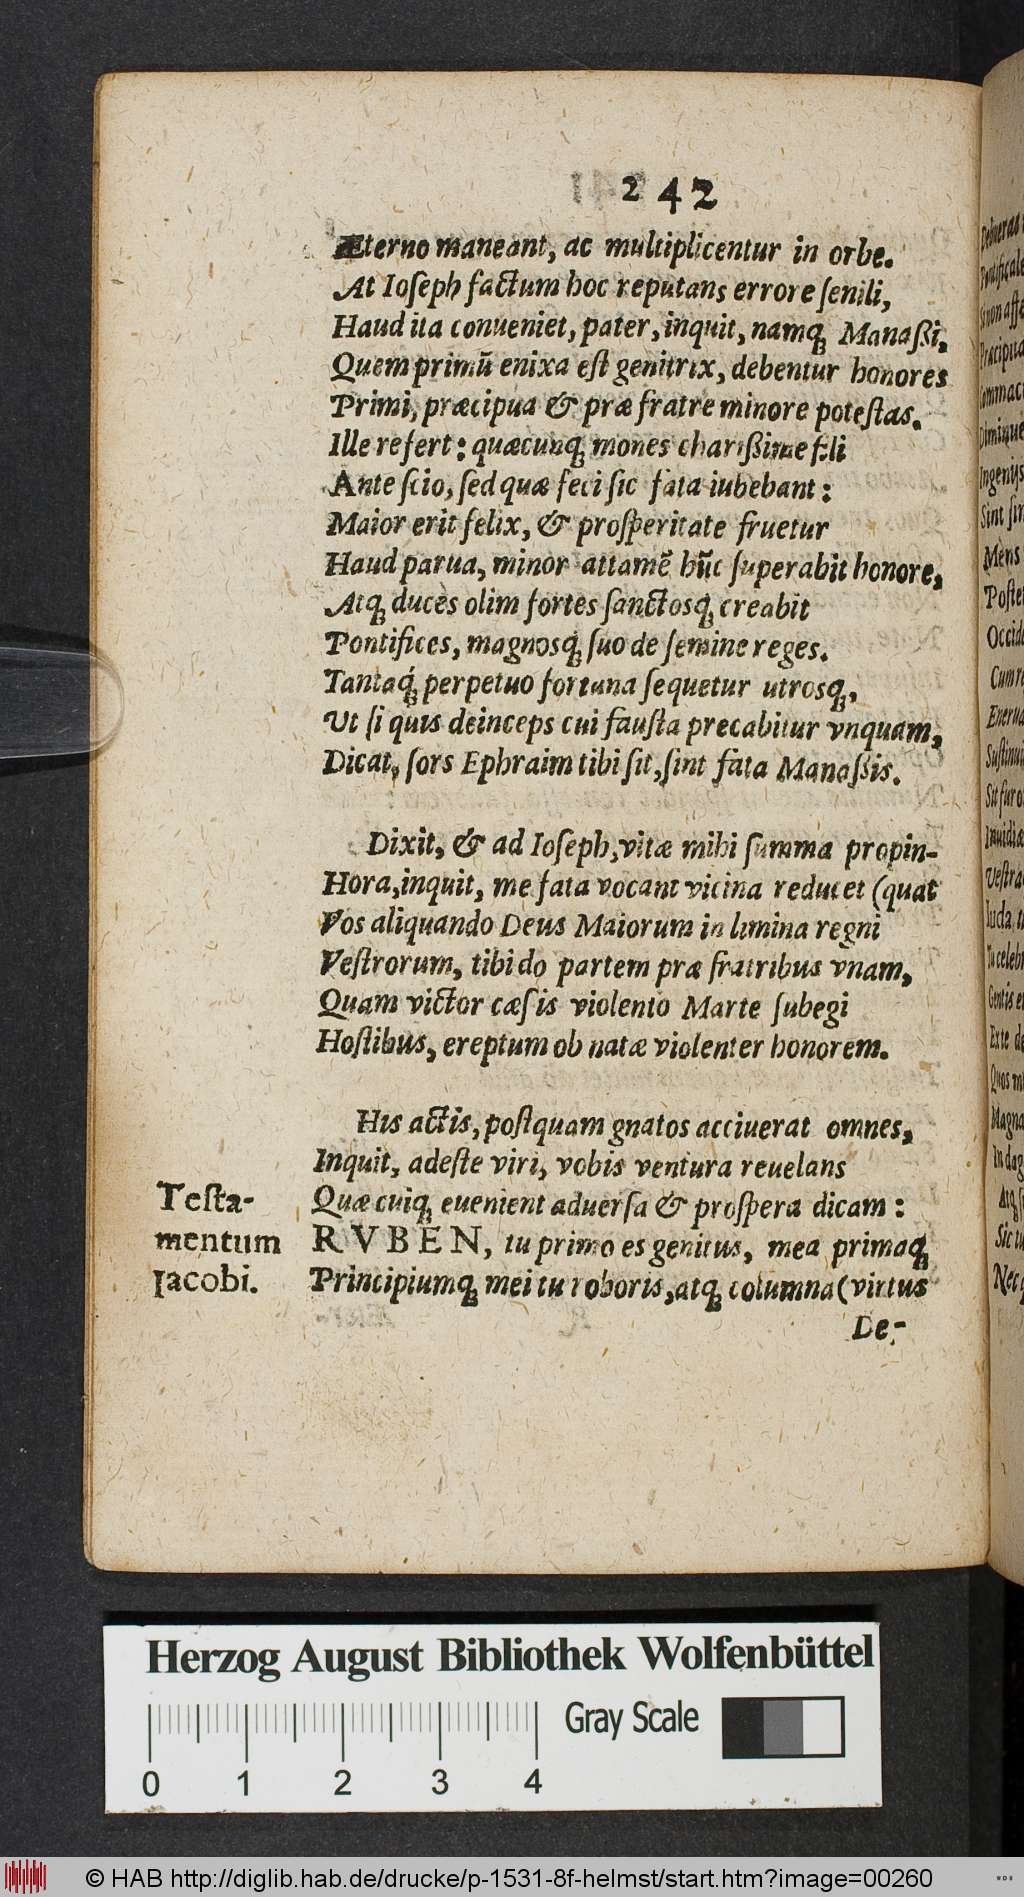 242
Æterno maneant, ac multiplicentur in orbe.
At Ioſeph factum hoc reputans errore ſenili,
Haud ita conueniet, pater, inquit, namq́ꝫ Manaßi,
Quem primū enixa eſt genitrix, debentur honores
Primi, præcipua & præ fratre minore poteſtas.
Ille refert: quæcunqꝫ mones charißime fili
Ante ſcio, ſed quæ feci ſic fata iubebant:
Maior erit felix, & proſperitate fruetur
Haud parua, minor attamē hūc ſuperabit honore,
Atqꝫ duces olim fortes ſanctosqꝫ creabit
Pontifices, magnosq́ꝫ ſuo de ſemine reges.
Tantaq́ꝫ perpetuo fortuna ſequetur utrosqꝫ,
Ut ſi quis deinceps cui fauſta precabitur vnquam,
Dicat, ſors Ephraim tibi ſit, ſint fata Manaßis.
Dixit, & ad Ioſeph, vitæ mihi ſumma propin-
Hora, inquit, me fata vocant vicina reducet (quat
Vos aliquando Deus Maiorum in limina regni
Veſtrorum, tibi do partem præ fratribus vnam,
Quam victor cæſis violento Marte ſubegi
Hoſtibus, ereptum ob natæ violenter honorem.
His actis, poſtquam gnatos acciuerat omnes,
Inquit, adeſte viri, vobis ventura reuelans
Quæ cuiqꝫ euenient aduerſa & proſpera dicam:
Teſta-
mentum
Iacobi.
RVBEN, tu primo es genitus, mea primaqꝫ
Principiumqꝫ mei tu roboris, atqꝫ columna (virtus
De-
Herzog August Bibliothek Wolfenbüttel
Gray Scale
0 1 2 3 4
© HAB http://diglib.hab.de/drucke/p-1531-8f-helmst/start.htm?image=00260